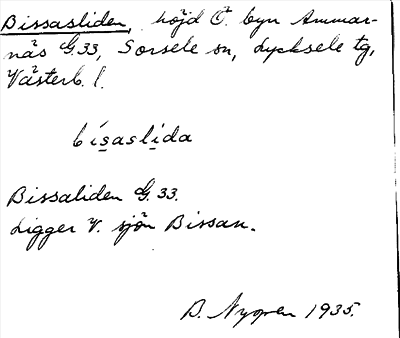 Bissasliden, höjd Ö. byn Ammar-
näs G.33, Sorsele sn, Lycksele tg,
Västerb. l.
bísaslida
Bissaliden G.33.
Ligger V. sjön Bissan.
B. Nygren 1935.